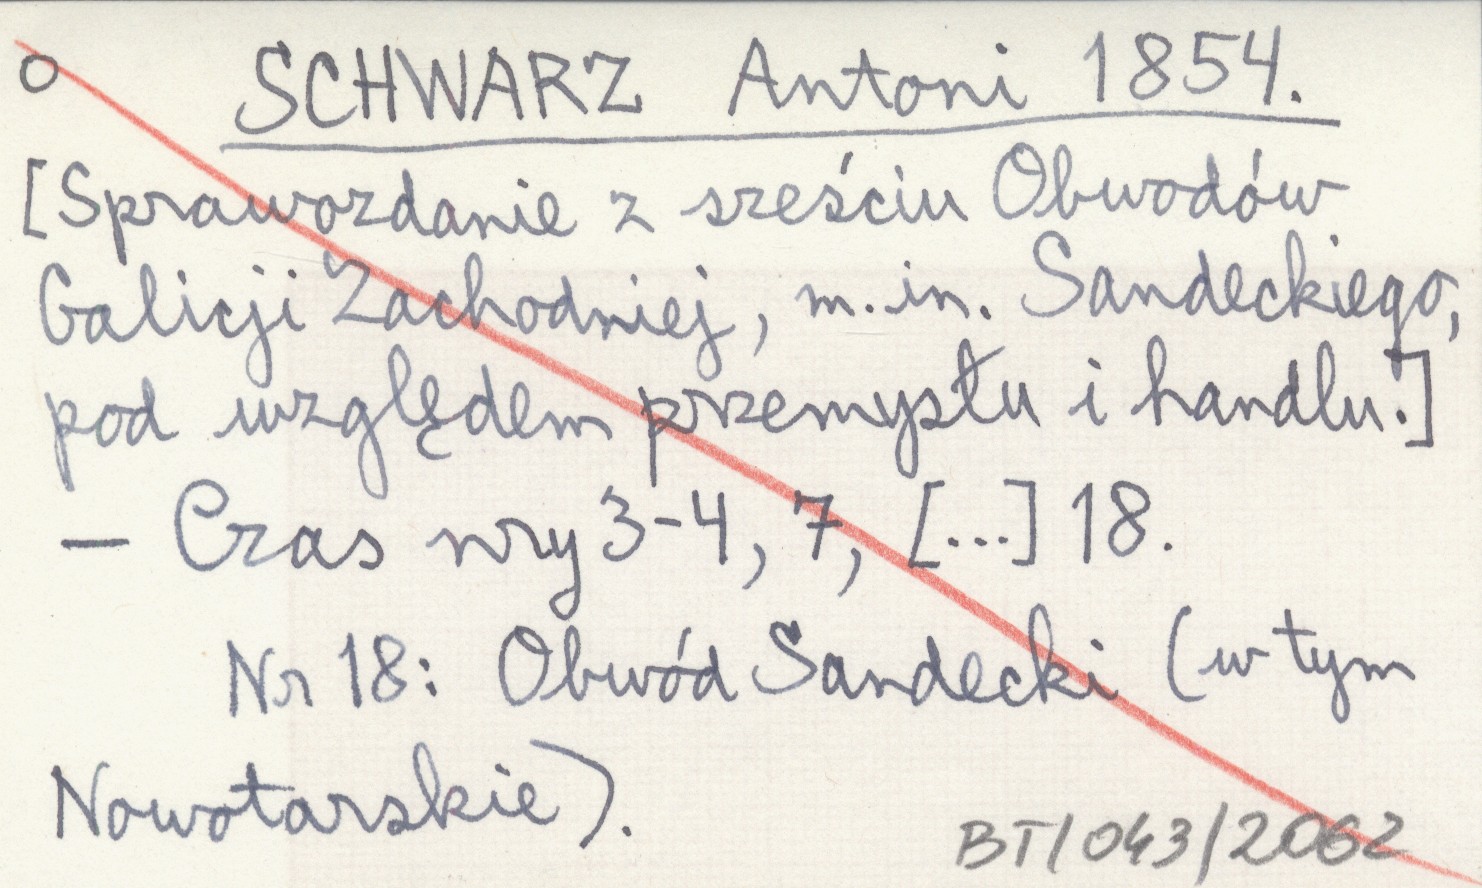 SCHWARZ Antoni 1854.
[Sprawozdanie z sześciu Obwodów
Galicji Zachodniej, m.in. Sandeckiego,
pod względem przemysłu i handlu.]
— Czas nry 3-4, 7, [...] 18.
Nr 18: Obwód Sandecki (w tym
Nowotarskie).
BT/043/2062